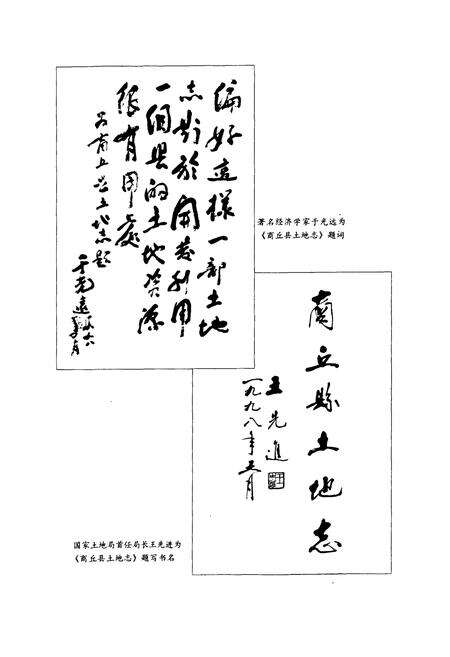 编好這樣一部土地
志對於開發利用
一個县的土地资源
很有用處
为商丘县土地志题
于光遠
著名经济学家于光远为
《商丘县土地志》题词
商丘縣土地志
王先進
一九九八年五月
国家土地局首任局长王先进为
《商丘县土地志》题写书名